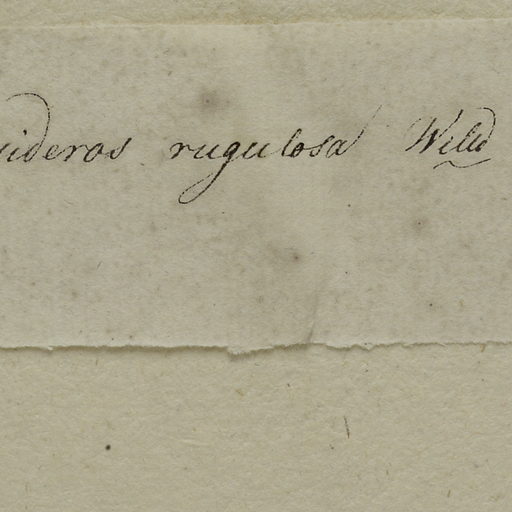 uideros rugulosa Willd